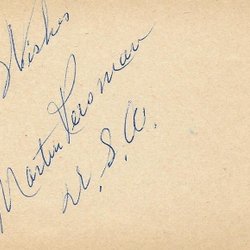 Wishes
Martin Persman
U.S.A.